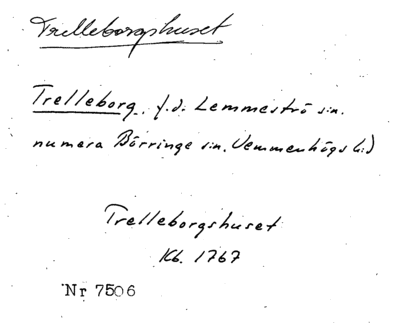 Trelleborgshuset
Trelleborg, f.d. Lemmeströ sn.
numera Börringe sn. Vemmenhögs hd
Trelleborgshuset
Kb. 1767
Nr 7506